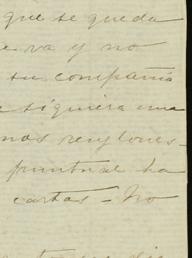 que se queda
e va y no
su compañia
e siquiera una
nos renglones-
puntual ha
cartas - No
que die